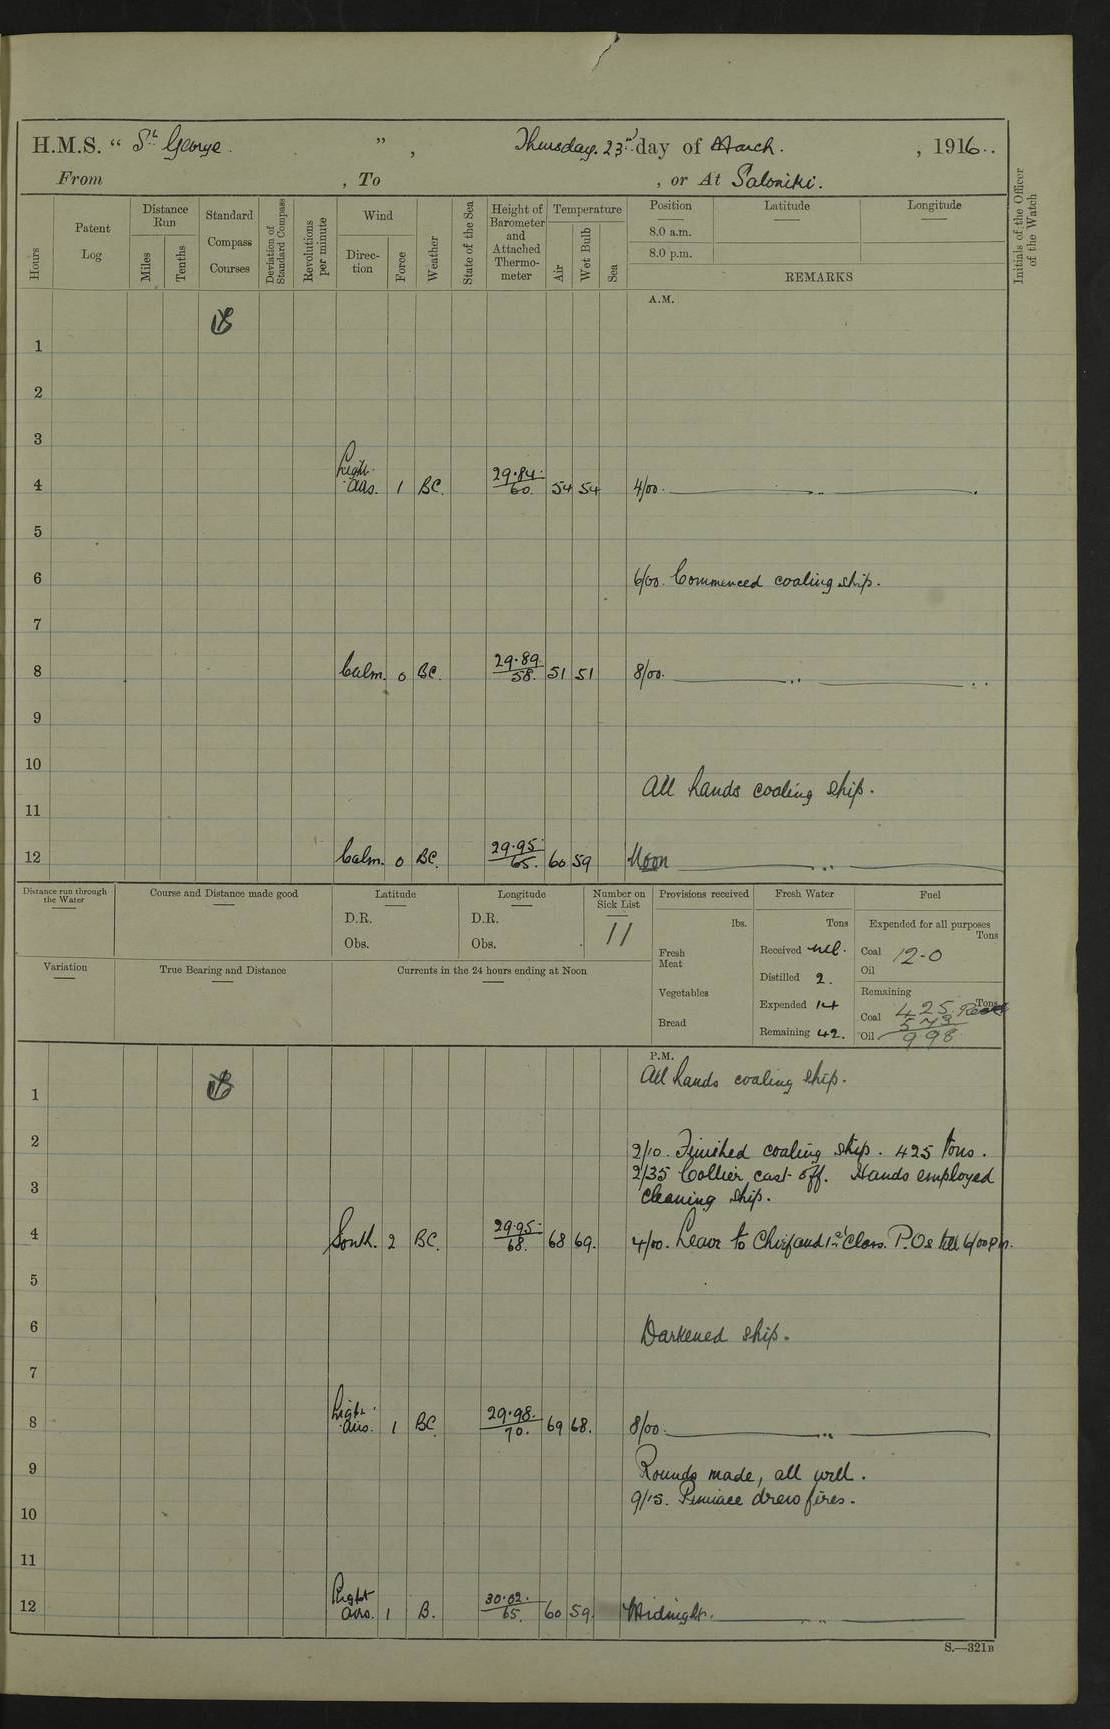 H.M.S. “ St George. ”, Thursday. 23rd day of March. , 1916..
From , To , or At Saloniki.
Hours
Patent Log
Distance Run
Miles
Tenths
Standard Compass Courses
Deviation of Standard Compass
Revolutions per minute
Wind
Direction
Force
Weather
State of the Sea
Height of Barometer and Attached Thermometer
Temperature
Air
Wet Bulb
Sea
Position
8.0 a.m.
8.0 p.m.
Latitude
Longitude
REMARKS
Initials of the Officer of the Watch
A.M.
1
2
3
4 Light airs. 1 BC. 29.84 60. 54 54 4/00. „ .
5
6 6/00. Commenced coaling ship.
7
8 Calm. 0 BC. 29.89 58. 51 51 8/00. „
9
10
All hands coaling ship.
11
12 Calm. 0 BC. 29.95 65. 60 59 Noon „
Distance run through the Water
Course and Distance made good
Latitude
D.R.
Obs.
Longitude
D.R.
Obs.
Number on Sick List
11
Variation
True Bearing and Distance
Currents in the 24 hours ending at Noon
Provisions received
lbs.
Fresh Meat
Vegetables
Bread
Fresh Water
Tons
Received nil.
Distilled 2.
Expended 14
Remaining 42.
Fuel
Expended for all purposes
Tons
Coal 12-0
Oil
Remaining
Tons
Coal 425
573
Oil 998
P.M.
All hands coaling ship.
1
2 2/10. Finished coaling ship. 425 tons.
2/35 Collier cast off. Hands employed
3 cleaning ship.
4 South. 2 BC. 29.95 68. 68 69. 4/00. Leave to Chief and 1st Class. P.Os till 6/00 pm.
5
6 Darkened ship.
7
8 Light airs. 1 BC 29.98. 70. 69 68. 8/00. „
9 Rounds made, all well.
9/15. Pinnace drew fires.
10
11
12 Light airs. 1 B. 30.02. 65. 60 59. Midnight. „
S.—321B